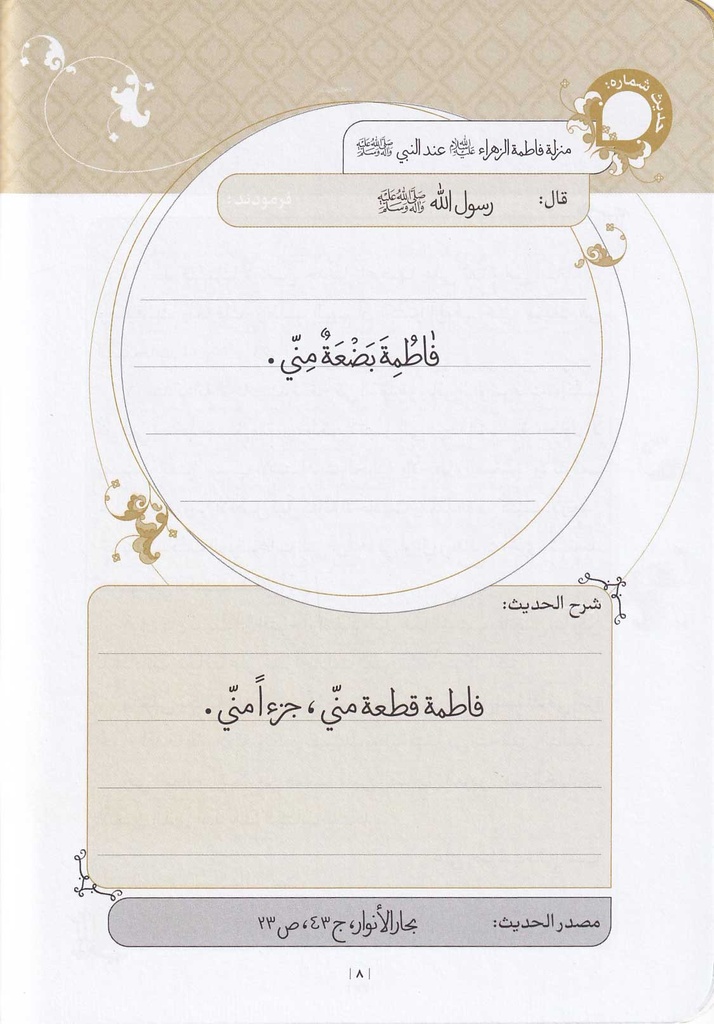 حديث شماره:
منزلة فاطمة الزهراء عليها السلام عند النبي صلى الله عليه وآله وسلم
قال: رسول الله صلى الله عليه وآله وسلم فرمودند:
فَاطُمِةَ بَضْعَةٌ مِنّي.
شرح الحديث:
فاطمة قطعة منّي، جزءاً منّي.
مصدر الحديث: بحار الأنوار، ج٤٣، ص٢٣
|٨|